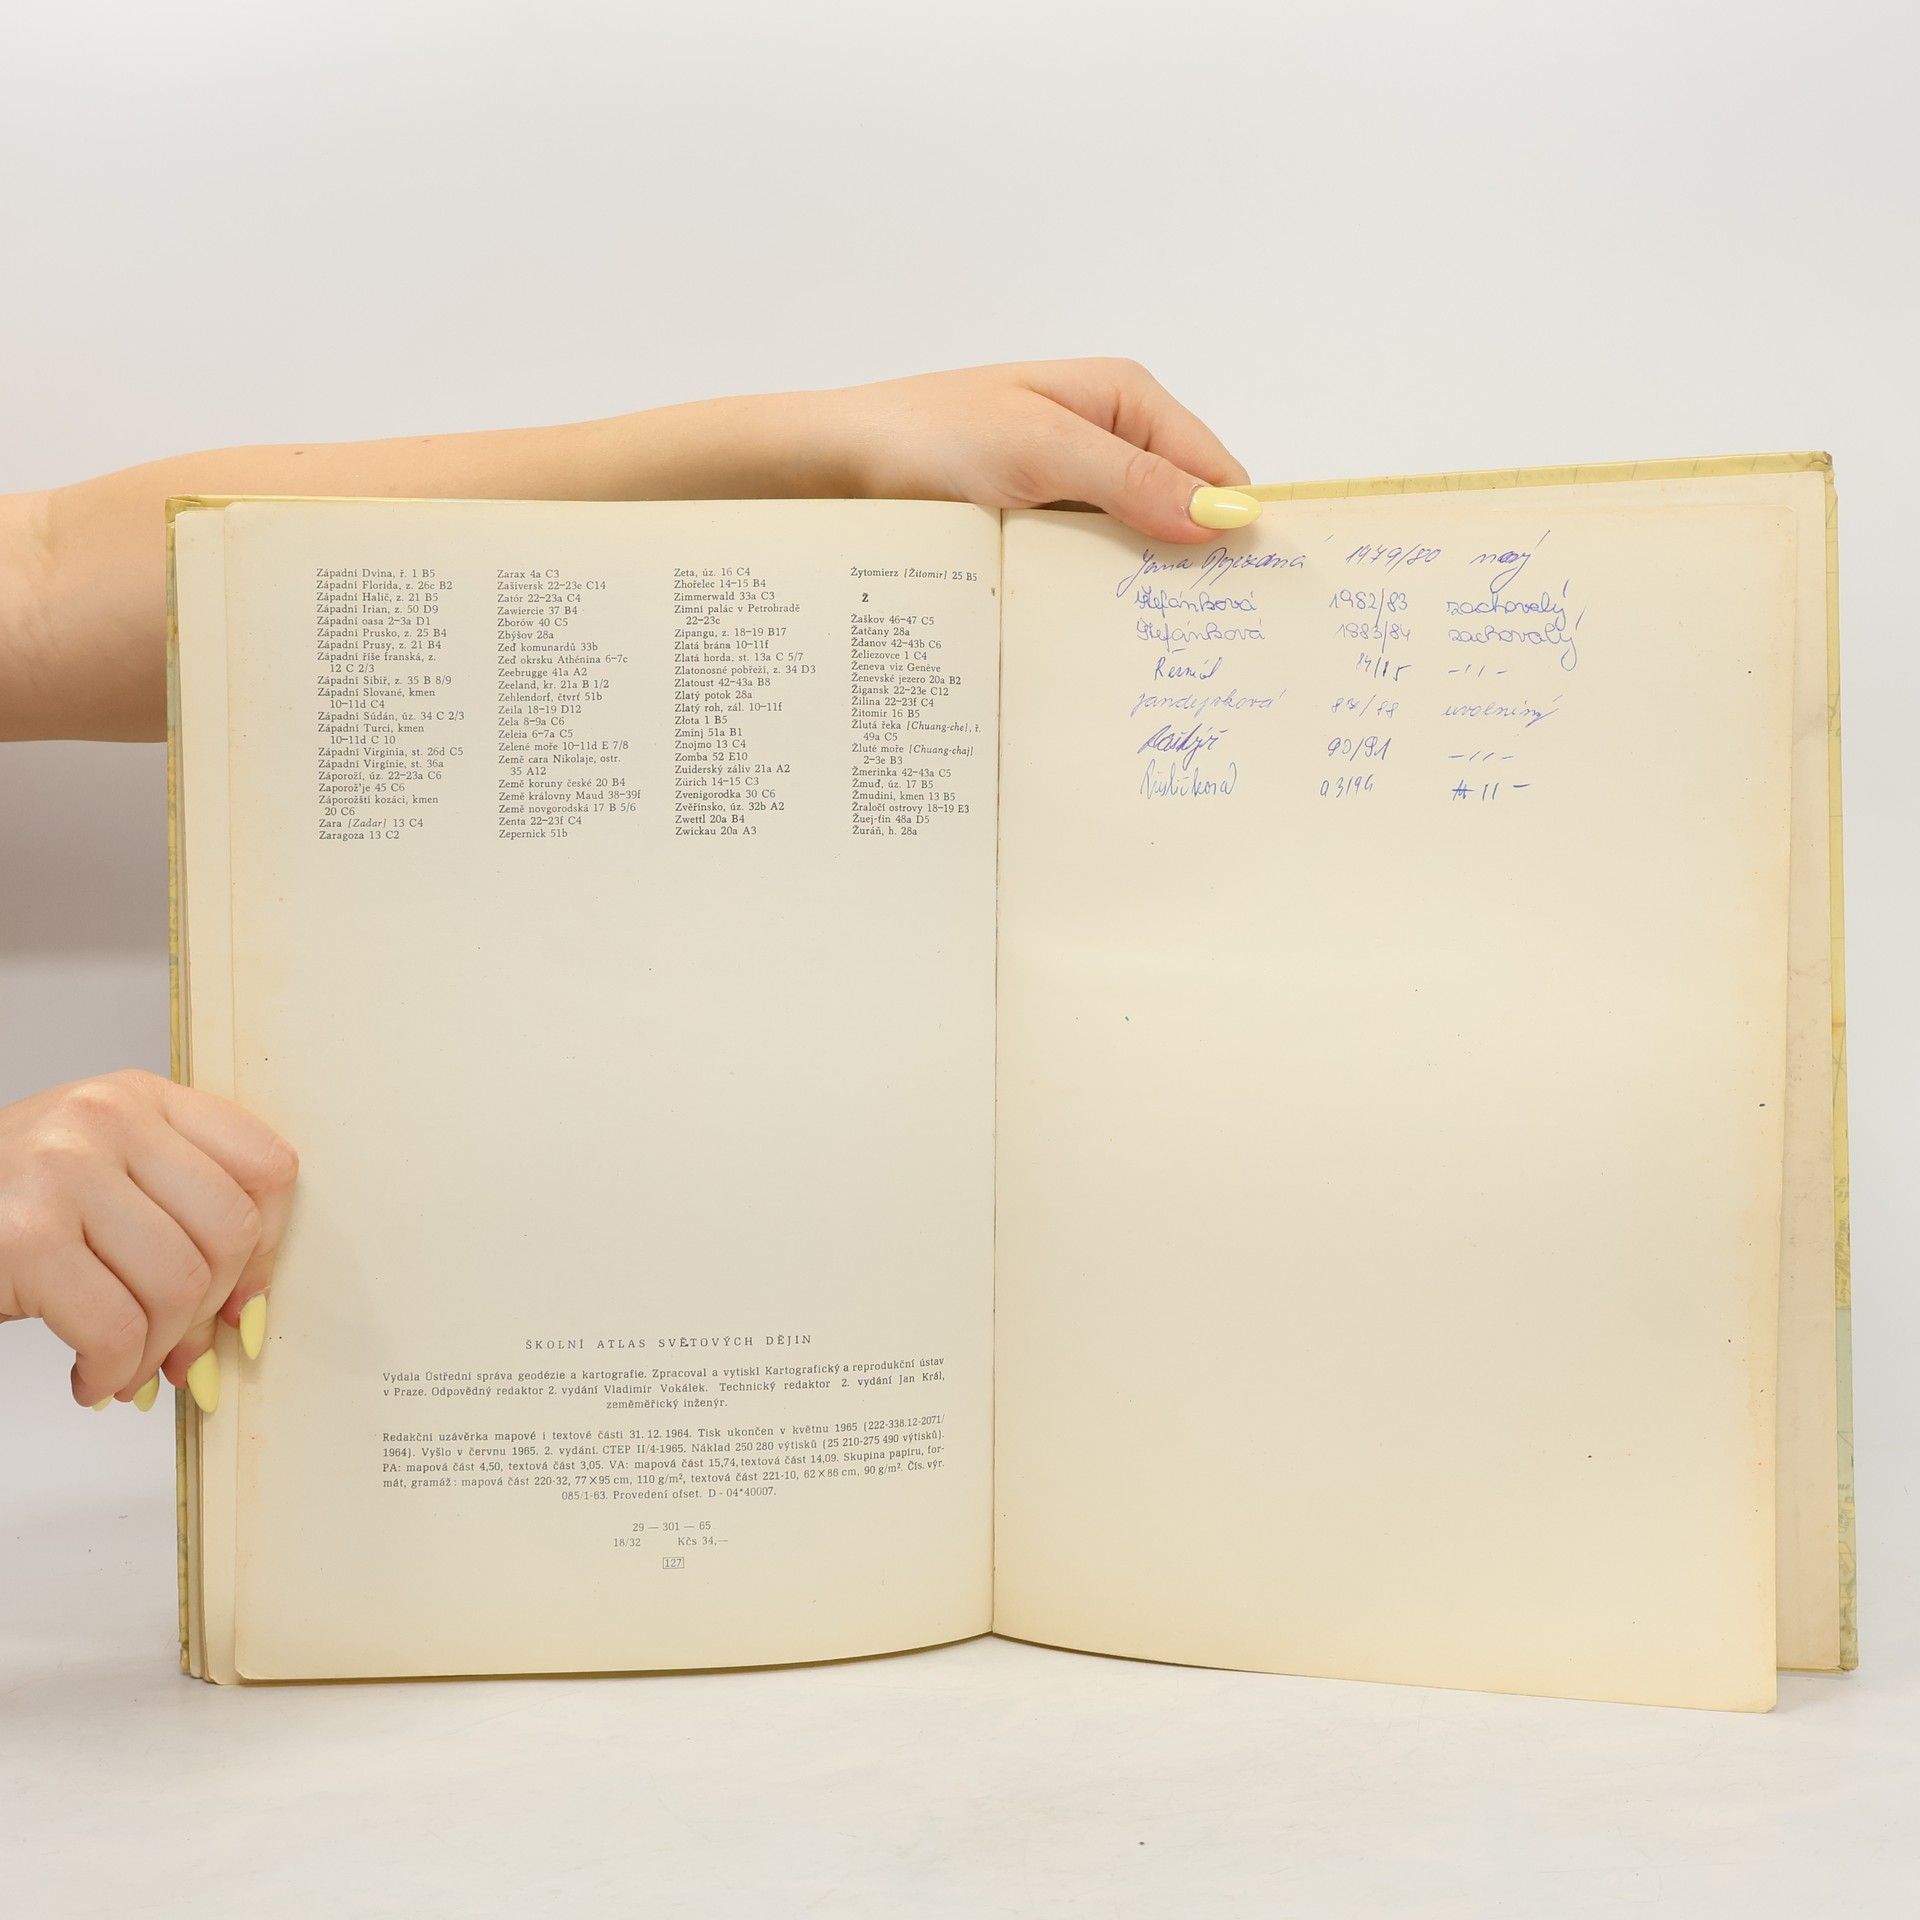 Západní Dvina, ř. 1 B5
Západní Florida, z. 26e B2
Západní Halič, z. 21 B5
Západní Irian, z. 50 D9
Západní oasa 2–3a D1
Západní Prusko, z. 25 B4
Západní Prusy, z. 21 B4
Západní říše franská, z.
12 C 2/3
Západní Sibiř, z. 35 B 8/9
Západní Slované, kmen
10–11d C4
Západní Súdán, úz. 34 C 2/3
Západní Turci, kmen
10–11d C 10
Západní Virginia, st. 26d C5
Západní Virginie, st. 36a
Záporoží, úz. 22–23a C6
Záporož'je 45 C6
Záporožští kozáci, kmen
20 C6
Zara [Zadar] 13 C4
Zaragoza 13 C2
Zarax 4a C3
Zašiversk 22–23e C14
Zatór 22–23a C4
Zawiercie 37 B4
Zborów 40 C5
Zbýšov 28a
Zeď komunardů 33b
Zeď okrsku Athénina 6–7c
Zeebrugge 41a A2
Zeeland, kr. 21a B 1/2
Zehlendorf, čtvrť 51b
Zeila 18–19 D12
Zela 8–9a C6
Zeleia 6–7a C5
Zelené moře 10–11d E 7/8
Země cara Nikolaje, ostr.
35 A12
Země koruny české 20 B4
Země královny Maud 38–39f
Země novgorodská 17 B 5/6
Zenta 22–23f C4
Zepernick 51b
Zeta, úz. 16 C4
Zhořelec 14–15 B4
Zimmerwald 33a C3
Zimní palác v Petrohradě
22–23c
Zipangu, z. 18–19 B17
Zlatá brána 10–11f
Zlatá horda, st. 13a C 5/7
Zlatonosné pobřeží, z. 34 D3
Zlatoust 42–43a B8
Zlatý potok 28a
Zlatý roh, zál. 10–11f
Złota 1 B5
Zminj 51a B1
Znojmo 13 C4
Zomba 52 E10
Zuiderský záliv 21a A2
Zürich 14–15 C3
Zvenigorodka 30 C6
Zvěřínsko, úz. 32b A2
Zwettl 20a B4
Zwickau 20a A3
Żytomierz [Žitomir] 25 B5
Ž
Žaškov 46–47 C5
Žatčany 28a
Ždanov 42–43b C6
Želiezovce 1 C4
Ženeva viz Genève
Ženevské jezero 20a B2
Žigansk 22–23e C12
Žilina 22–23f C4
Žitomir 16 B5
Žlutá řeka [Chuang-che], ř.
49a C5
Žluté moře [Chuang-chaj]
2–3e B3
Žmerinka 42–43a C5
Žmuď, úz. 17 B5
Žmudini, kmen 13 B5
Žraločí ostrovy 18–19 E3
Žuej-ťin 48a D5
Žuráň, h. 28a
ŠKOLNÍ ATLAS SVĚTOVÝCH DĚJIN
Vydala Ústřední správa geodézie a kartografie. Zpracoval a vytiskl Kartografický a reprodukční ústav
v Praze. Odpovědný redaktor 2. vydání Vladimír Vokálek. Technický redaktor 2. vydání Jan Král,
zeměměřický inženýr.
Redakční uzávěrka mapové i textové části 31. 12. 1964. Tisk ukončen v květnu 1965 (222-338.12-2071/
1964). Vyšlo v červnu 1965. 2. vydání. CTEP II/4-1965. Náklad 250 280 výtisků (25 210-275 490 výtisků).
PA: mapová část 4,50, textová část 3,05. VA: mapová část 15,74, textová část 14,09. Skupina papíru, for-
mát, gramáž: mapová část 220-32, 77×95 cm, 110 g/m², textová část 221-10, 62×86 cm, 90 g/m². Čís. výr.
085/1-63. Provedení ofset. D - 04*40007.
29 — 301 — 65
18/32 Kčs 34,—
127
Jana 1979/80 nový
Štefánková 1982/83 zachovalý
Štefánková 1983/84 zachovalý
84/85 –''–
87/88 uvolněný
90/91 –''–
93/94 –''–